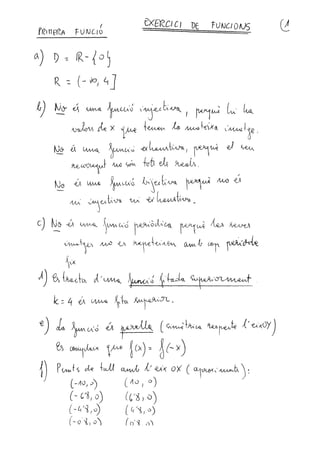 EXERCICI DE FUNCIONS
(1
PRIMERA FUNCIÓ
a) D = ℝ - {0}
R = (-∞, 4]
b) No és una funció injectiva, perquè hi ha
valors de x que tenen la mateixa imatge.
No és una funció exhaustiva, perquè el seu
recorregut no són tots els reals.
No és una funció bijectiva perquè no és
ni injectiva ni exhaustiva.
c) No és una funció periòdica perquè les seves
imatges no es repeteixen amb cap període
fix
d) Es tracta d'una funció fitada superiorment.
k=4 és una fita superior.
e) La funció és parella (simètrica respecte l'eix OY)
Es compleix que f(x) = f(-x)
f) Punts de tall amb l'eix OX (aproximats):
(-10,0) (10,0)
(-6'8,0) (6'8,0)
(-4'8,0) (4'8,0)
(-0'8,0) (0'8,0)